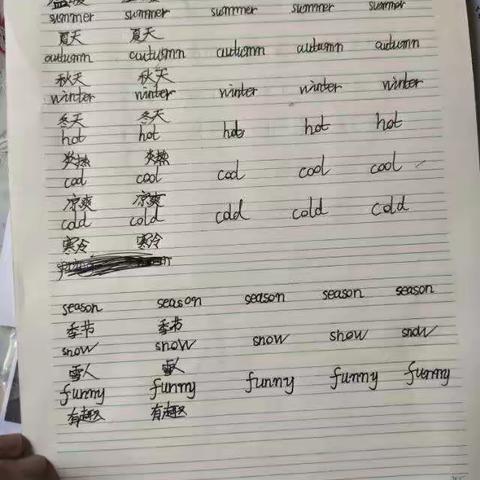 summer summer summer summer summer
夏天 夏天
autumn autumn autumn autumn autumn
秋天 秋天
winter winter winter winter winter
冬天 冬天
hot hot hot hot hot
炎热 炎热
cool cool cool cool cool
凉爽 凉爽
cold cold cold cold cold
寒冷 寒冷
season season season season season
季节 季节
snow snow snow snow snow
雪人 雪人
funny funny funny funny funny
有趣 有趣